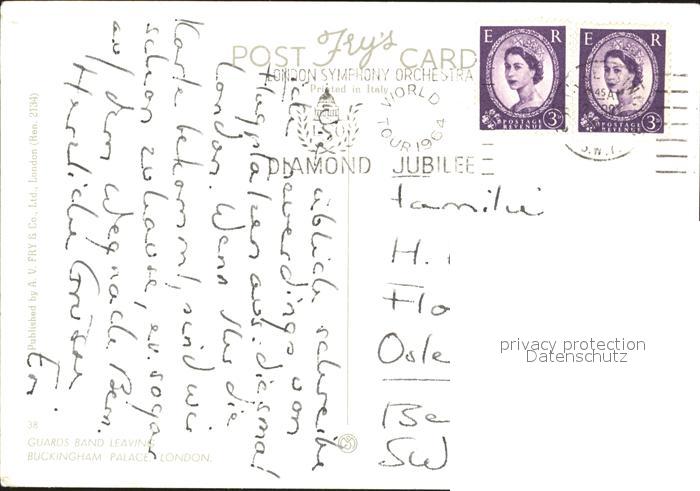 POST Fry's CARD
LONDON SYMPHONY ORCHESTRA
Printed in Italy
WORLD TOUR 1964
DIAMOND JUBILEE
E R
POSTAGE REVENUE 3D
E R
POSTAGE REVENUE 3D
S.W.1.
Wie üblich schreibe
ich neuerdings von
Flugplätzen aus, diesmal
London. Wenn Ihr die
Karte bekommt, sind wir
schon zuhause, ev. sogar
auf dem Weg nach Bern.
Herzliche Grüsse
Familie
H.
Flo
Oste
Be
SW
privacy protection
Datenschutz
Published by A. V. FRY & Co., Ltd., London (Ren. 2134)
38
GUARDS BAND LEAVING
BUCKINGHAM PALACE, LONDON.